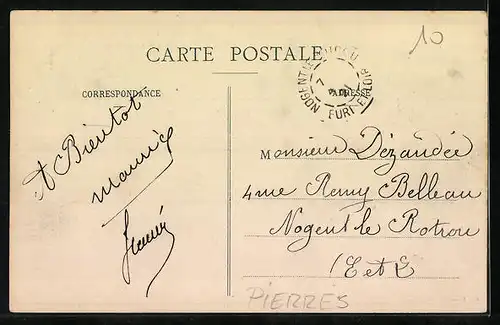 CARTE POSTALE
10
CORRESPONDANCE
ADRESSE
NOGENT-LE-ROTROU
7
EURE-ET-LOIR
A Bientot
Monsieur Dézandée
4 rue Remy Belleau
Nogent le Rotrou
(E et L
PIERRES